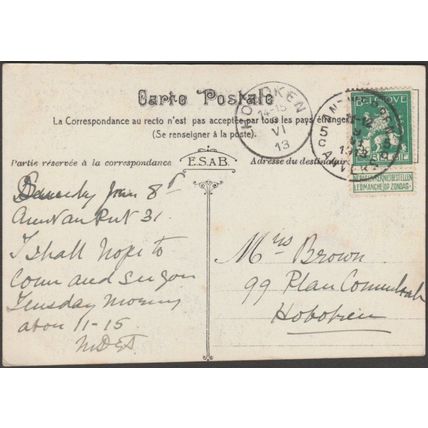 Carte Postale
La Correspondance au recto n'est pas acceptée par tous les pays étrangers
(Se renseigner à la poste).
Partie réservée à la correspondance
E.S.A.B.
Adresse du destinataire
HOBOKEN
VI
13
ANTWERPEN
5
C
ANVERS
NE PAS LIVRER LE DIMANCHE
NIET BESTELLEN OP ZONDAG
June 8th
31.
I shall hope to
come and see you
Tuesday morning
about 11-15
Mrs Brown
99 Plan Communal
Hoboken